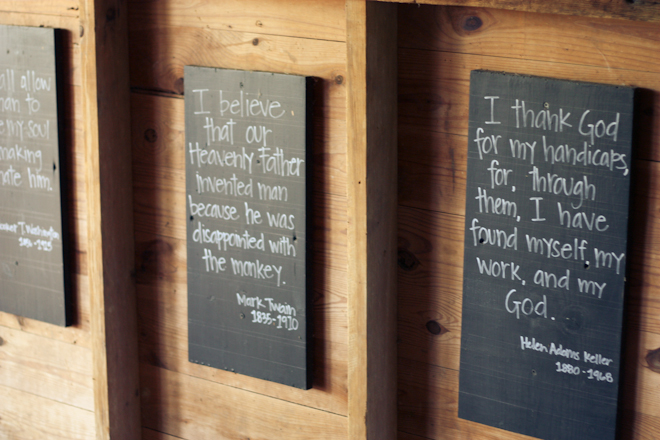 allow
to
my soul
him.
T. Washington
I believe
that our
Heavenly Father
invented man
because he was
disappointed with
the monkey.
Mark Twain
1835-1910
I thank God
for my handicaps,
for, through
them, I have
found myself, my
work, and my
God.
Helen Adams Keller
1880-1968